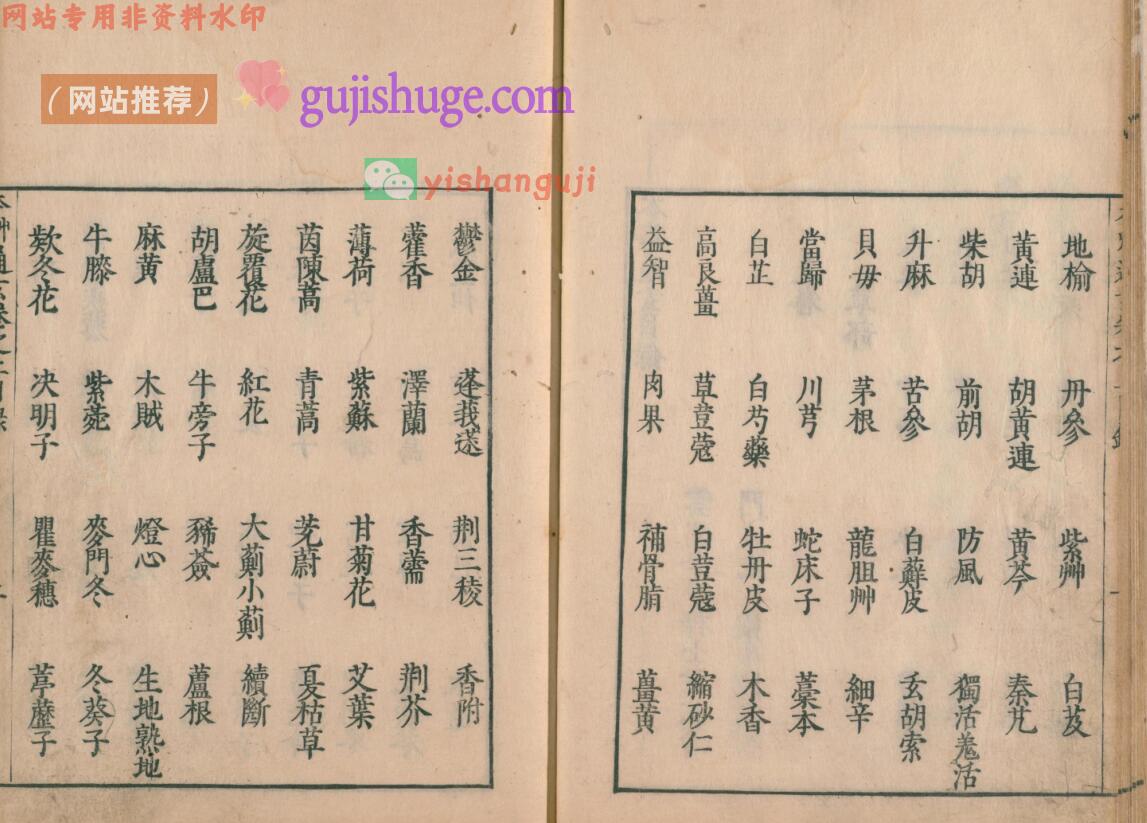 网站专用非资料水印
（网站推荐）
gujishuge.com
yishanguji
地榆 丹參 紫艸 白芨
黃連 胡黃連 黃芩 秦艽
柴胡 前胡 防風 獨活羗活
升麻 苦參 白蘚皮 玄胡索
貝毋 茅根 龍胆艸 細辛
當歸 川芎 蛇床子 藁本
白芷 白芍藥 牡丹皮 木香
高良薑 草荳蔻 白荳蔻 縮砂仁
益智 肉果 補骨脂 薑黃
鬱金 蓬莪荗 荆三稜 香附
藿香 澤蘭 香薷 荆芥
薄荷 紫蘇 甘菊花 艾葉
茵陳蒿 青蒿 茺蔚 夏枯草
旋覆花 紅花 大薊小薊 續斷
胡盧巴 牛旁子 豨薟 蘆根
麻黃 木賊 燈心 生地熟地
牛膝 紫菀 麥門冬 冬葵子
欵冬花 决明子 瞿麥穗 葶藶子